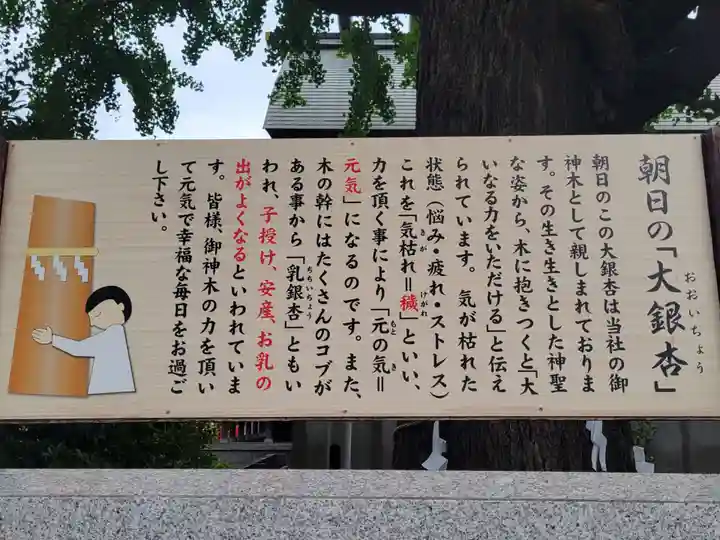 朝日の「大銀杏」
おおいちょう
朝日のこの大銀杏は当社の御
神木として親しまれておりま
す。その生き生きとした神聖
な姿から、木に抱きつくと「大
いなる力をいただける」と伝え
られています。気が枯れた
状態(悩み・疲れ・ストレス)
これを「気枯れ=穢」といい、
きが
けがれ
力を頂く事により「元の気=
もと
き
元気」になるのです。また、
木の幹にはたくさんのコブが
ある事から「乳銀杏」ともい
ちちいちょう
われ、子授け、安産、お乳の
出がよくなるといわれていま
す。皆様、御神木の力を頂い
て元気で幸福な毎日をお過ご
し下さい。